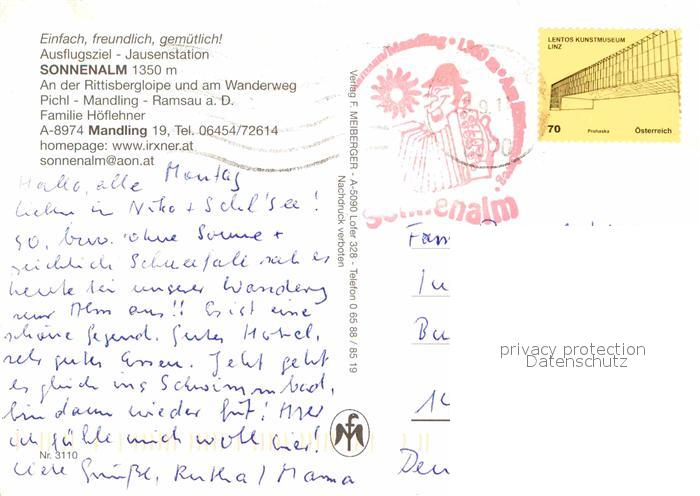 Einfach, freundlich, gemütlich!
Ausflugsziel - Jausenstation
SONNENALM 1350 m
An der Rittisbergloipe und am Wanderweg
Pichl - Mandling - Ramsau a. D.
Familie Höflehner
A-8974 Mandling 19, Tel. 06454/72614
homepage: www.irxner.at
sonnenalm@aon.at
Hallo, alle Montag
lieben in
so, bzw. ohne Sonne +
reichlich Schneefall sah es
heute bei unserer Wanderung
zur Alm aus!! Es ist eine
schöne Gegend. Gutes Hotel,
sehr gutes Essen. Jetzt geht
es gleich ins Schwimmbad,
bin dann wieder fit! Aber
ich fühle mich wohl hier!
Nr. 3110
Liebe Grüße, Mama
Verlag F. MEIBERGER - A-5090 Lofer 328 - Telefon 0 65 88 / 85 19
Nachdruck verboten
Mandling • 1350 m • Am
Sonnenalm
LENTOS KUNSTMUSEUM
LINZ
70
Prohaska
Österreich
Fam
In
Bu
14
Deu
privacy protection
Datenschutz